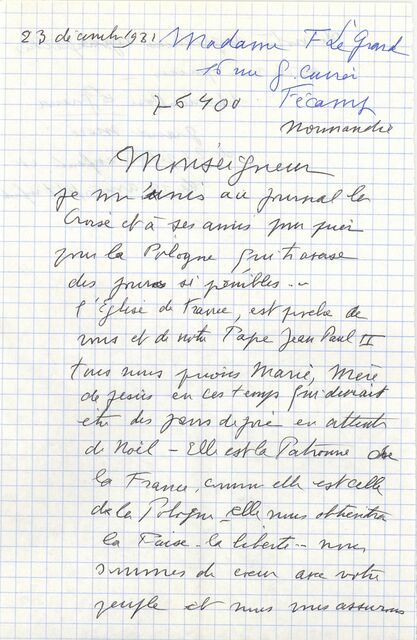 23 décembre 1981 Madame F Le Grand
16 rue G. Cuvier
76400 Fécamp
Normandie
Monseigneur
je m'unis au journal la
Croix et à ses amis pour prier
pour la Pologne qui traverse
des jours si pénibles...
l'Eglise de France, est proche de
vous et de notre Pape Jean Paul II
tous nous prions Marie, Mère
de Jesus en ces temps qui devrait
etre des jours de joie en attente
de Noël - Elle est la Patronne de
la France, comme elle est celle
de la Pologne - elle nous obtiendra
la Paix - la liberté - nous
sommes de cœur avec votre
peuple et nous vous assurons